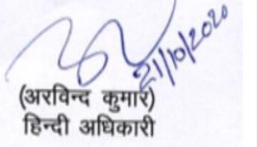 21/10/2020
(अरविन्द कुमार)
हिन्दी अधिकारी